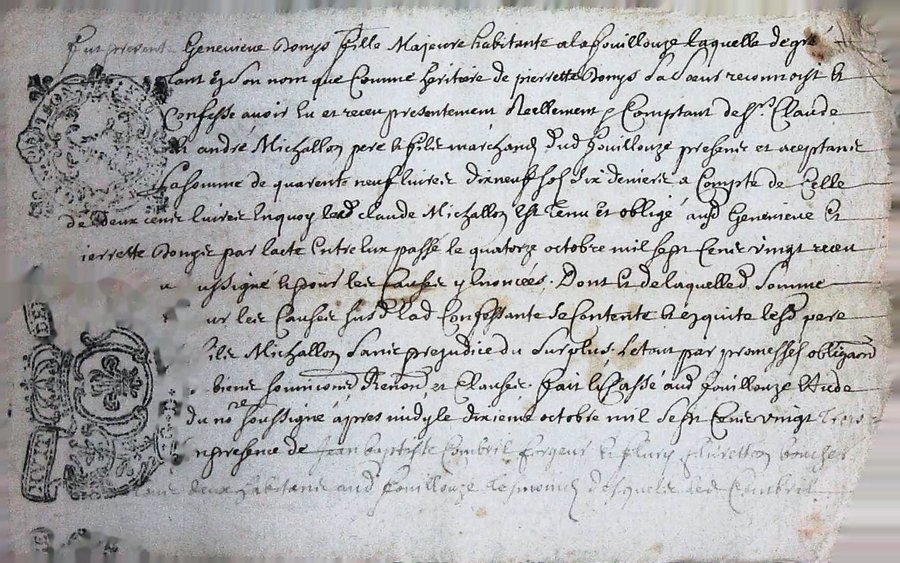 Fut presente Genevieve Donys fille Majeure habitante a la fouillouze laquelle de gré
tant en son nom que Comme heritiere de pierrette Donys sa soeur reconnoist et
Confesse avoir Eu et receu presentement Reellement Comptant de Sr. Claude
et andré Michallon pere et fils marchands dud fouillouze presents et aceptants
la somme de quarente neuf livres dix neuf sols six deniers a Compte de Celle
de deux cents livres Enquoy led claude Michallon Est tenu et obligé ausd Genevieve Et
ierrette Dongis par lacte Entre Eux passé le quatorze octobre mil sept Cents vingt receu
ussigné et pour les Causes y Enoncées. Dont et de laquelle d. Somme
ur les Causes susd. Lad Confessante se Contente et en quite lesd pere
fils Michallon Sans prejudice du Surplus. Estant par promesses obligaon
biens soumissions Renon et Clauses. fait et Passé aud fouillouze Etude
du nore soussigné apres midy le dixieme octobre mil Sept Cents vingt Trois
n presence de Jean baptiste Combril forgeur et fleury boucher
tous deux habitants aud fouillouze desquels led Combril